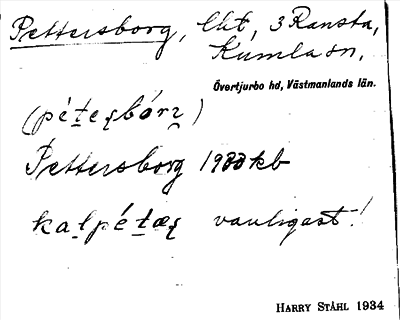 Pettersborg, lht, 3 Ransta,
Kumla sn,
Övertjurbo hd, Västmanlands län.
Pettersborg 1933 kb
vanligast!
HARRY STÅHL 1934